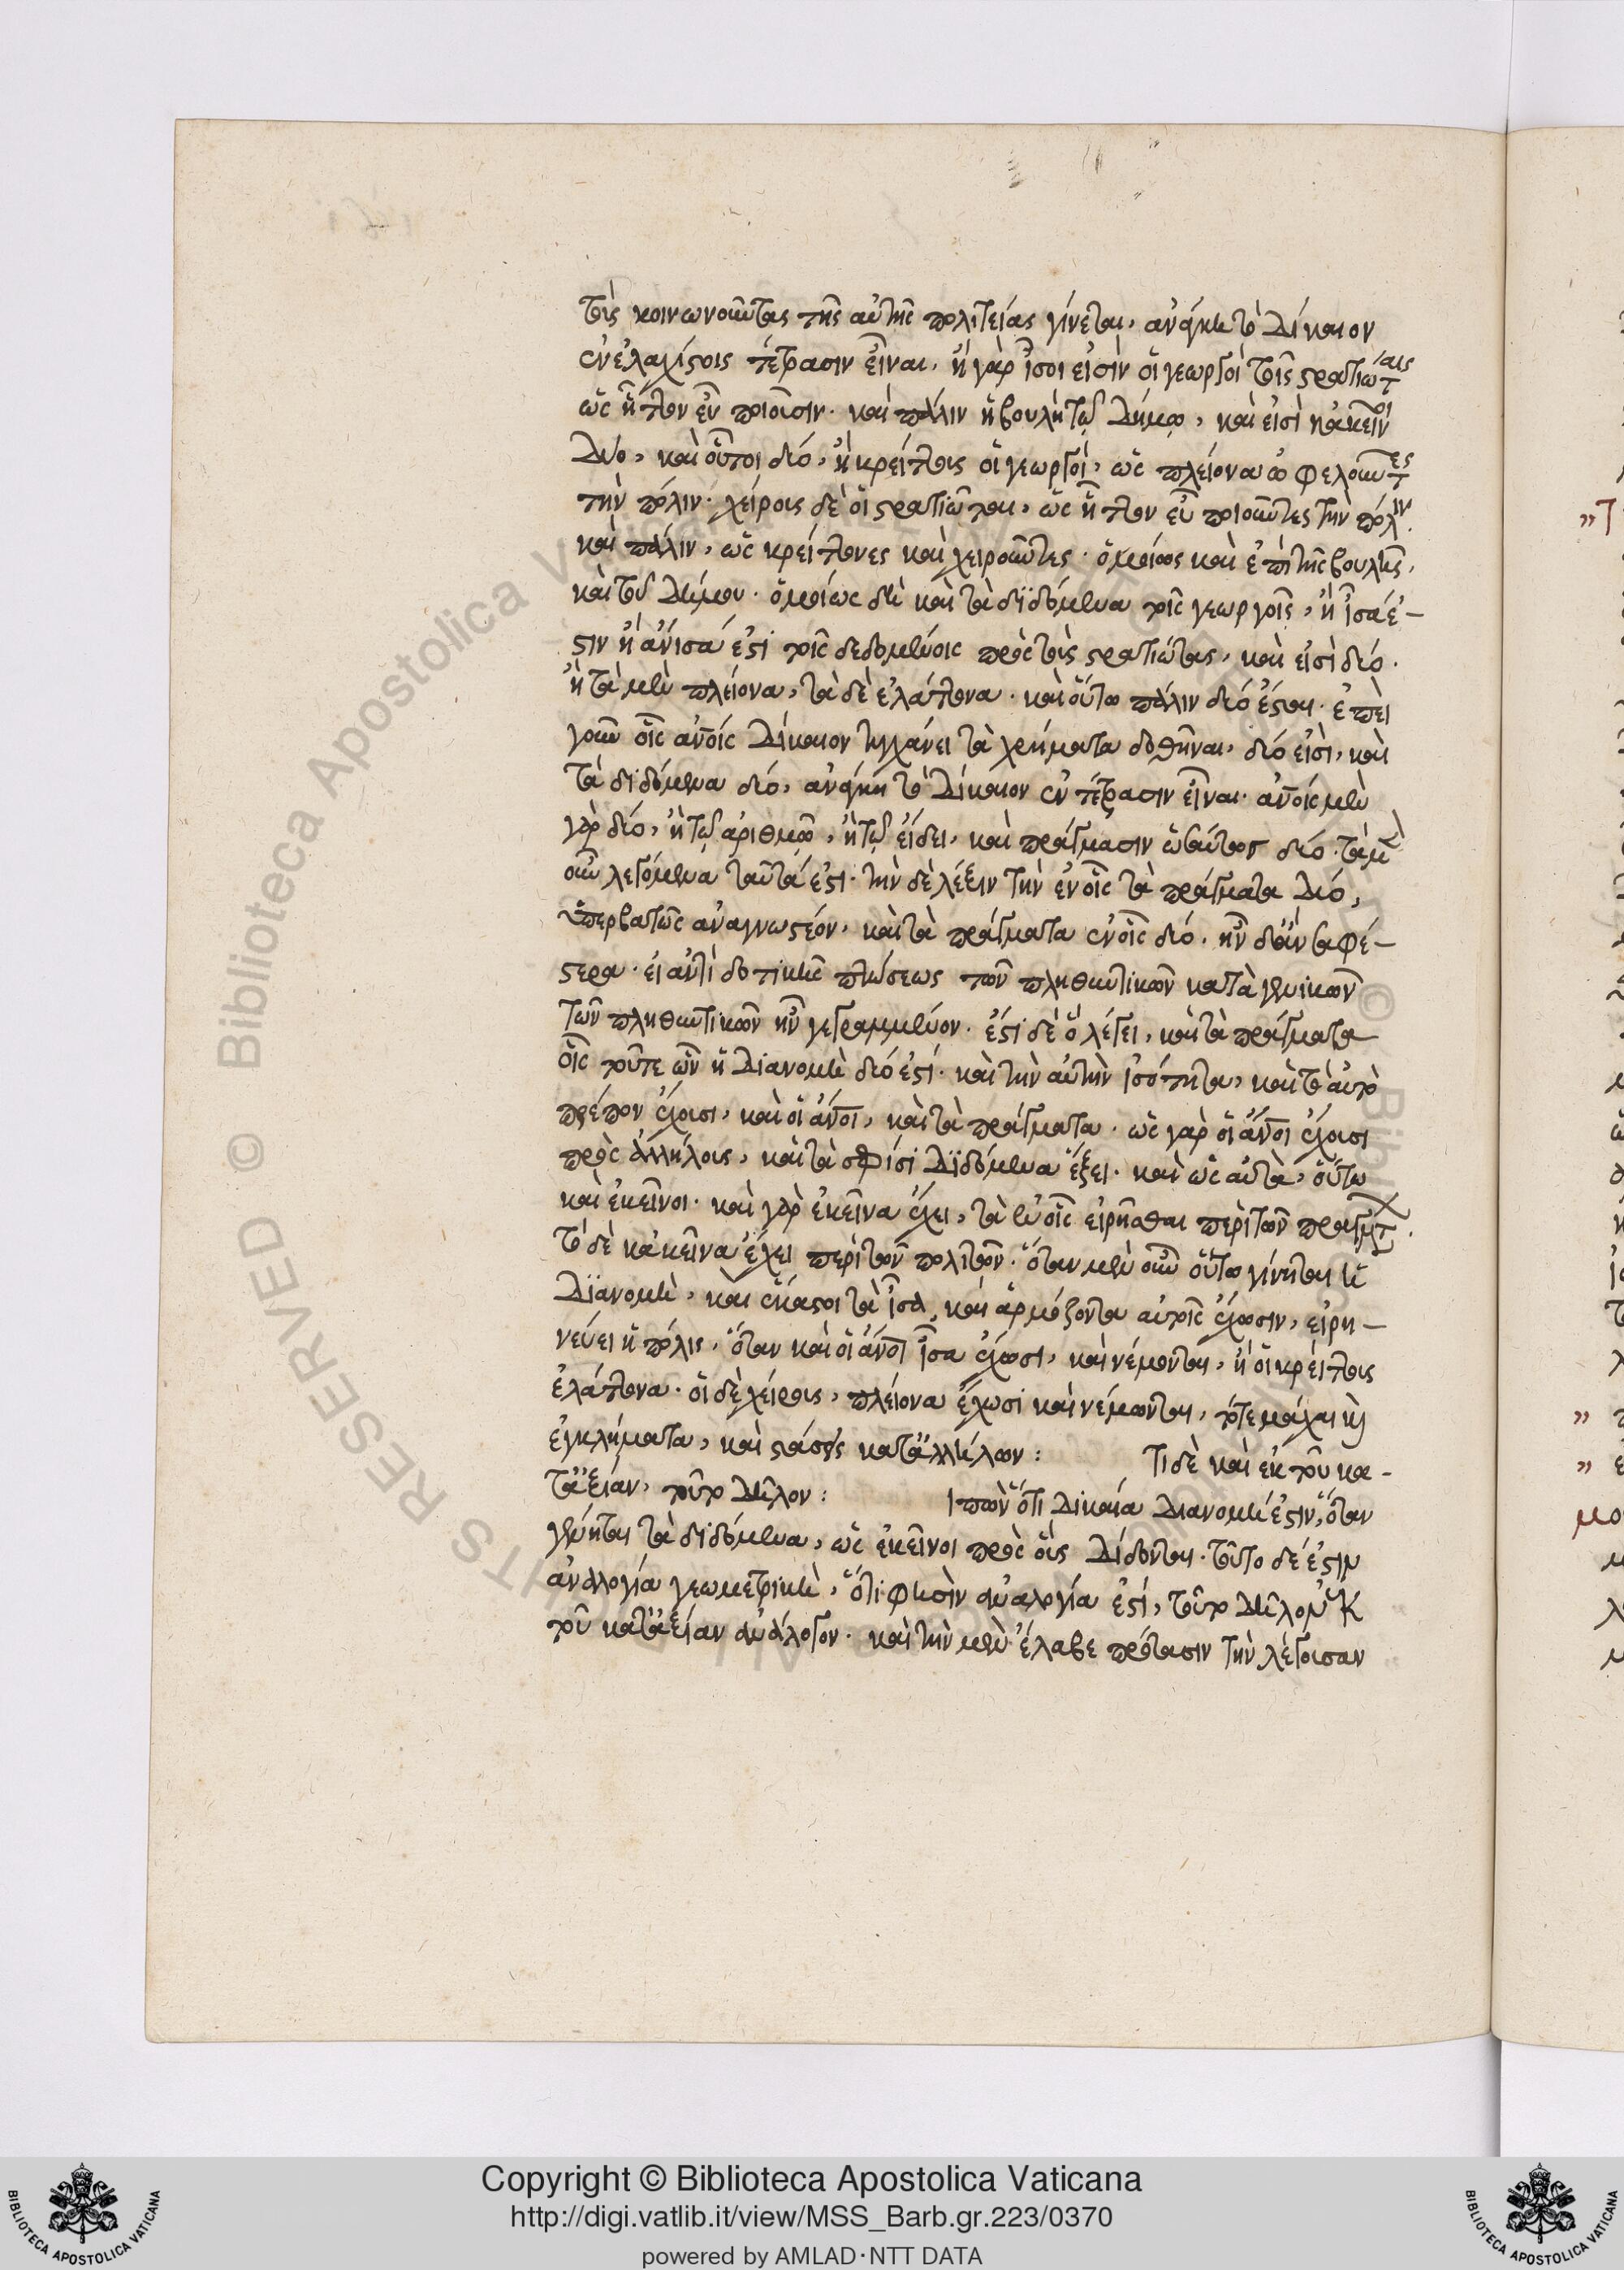 τοὺς κοινωνοῦντας τῆς αὐτῆς πολιτείας γίνεται, ἀνάγκη τὸ δίκαιον
ἐν ἐλαχίστοις τέτρασιν εἶναι. ἢ γὰρ ἴσοι εἰσὶν οἱ γεωργοὶ τοῖς στρατιώταις
ὡς ἧττον εὖ ποιοῦσιν. καὶ πάλιν ἡ βουλὴ τῷ δήμῳ, καὶ εἰσὶ κἀκεῖνοι
δύο, καὶ οὗτοι δύο, ἢ κρείττους οἱ γεωργοί, ὡς πλείονα ὠφελοῦντες
τὴν πόλιν. χείρους δὲ οἱ στρατιῶται, ὡς ἧττον εὖ ποιοῦντες τὴν πόλιν.
καὶ πάλιν, ὡς κρείττονες καὶ χειροῦντες. ὁμοίως καὶ ἐπὶ τῆς βουλῆς,
καὶ τοῦ δήμου. ὁμοίως δὴ καὶ τὰ διδόμενα τοῖς γεωργοῖς, ἢ ἴσα ἐ-
στιν ἢ ἄνισά ἐστι τοῖς δεδομένοις πρὸς τοὺς στρατιώτας, καὶ εἰσὶ δύο.
ἢ τὰ μὲν πλείονα, τὰ δὲ ἐλάττονα. καὶ οὕτω πάλιν δύο ἔσται. ἐπεὶ
γοῦν οἷς ἀνοῖς δίκαιον τυγχάνει τὰ χρήματα δοθῆναι, δύο εἰσὶ, καὶ
τὰ διδόμενα δύο, ἀνάγκη τὸ δίκαιον ἐν τέτρασιν εἶναι. ἀνοῖς μὲν
γὰρ δύο, ἢ τῷ ἀριθμῷ, ἢ τῷ εἴδει, καὶ πράγμασιν ὡσαύτως δύο. τὰ μὲν
οὖν λεγόμενα ταῦτά ἐστι. τὴν δὲ λέξιν τὴν ἐν οἷς τὰ πράγματα δύο,
ὑπερβατῶς ἀναγνωστέον, καὶ τὰ πράγματα ἐν οἷς δύο. ἦν δ' ἂν σαφέ-
στερα. εἰ ἀντὶ δοτικῆς πτώσεως τῶν πληθυντικῶν κατὰ γενικῶν
τῶν πληθυντικῶν ἦν γεγραμμένον. ἔστι δὲ ὃ λέγει, καὶ τὰ πράγματα
οἷς τοῦτε ὧν ἡ διανομὴ δύο ἐστί. καὶ τὴν αὐτὴν ἰσότητα, καὶ τὸ αὐτὸ
πρέπον ἔχουσι, καὶ οἱ ἄνοι, καὶ τὰ πράγματα. ὡς γὰρ οἱ ἄνοι ἔχουσι
πρὸς ἀλλήλους, καὶ τὰ σφίσι διδόμενα ἕξει. καὶ ὡς αὐτὰ, οὕτω
καὶ ἐκεῖνοι. καὶ γὰρ ἐκεῖνα ἔχει, τὰ ἐν οἷς εἰρῆσθαι περὶ τῶν πραγμάτ.
τὸ δὲ κἀκεῖνα ἔχει περὶ τῶν πολιτῶν. ὅταν μὲν οὖν οὕτω γίνηται ἡ
διανομὴ, καὶ ἕκαστοι τὰ ἴσα καὶ ἁρμόζοντα αὐτοῖς ἔχωσιν, εἰρη-
νεύει ἡ πόλις. ὅταν καὶ οἱ ἄνοι ἴσα ἔχωσι, καὶ νέμονται, ἢ οἱ κρείττους
ἐλάττονα. οἱ δὲ χείρους, πλείονα ἔχωσι καὶ νέμωνται, τότε μάχαι καὶ
ἐγκλήματα, καὶ στάσεις κατ' ἀλλήλων: Τι δὲ καὶ ἐκ τοῦ κα-
τ' ἀξίαν, τοῦτο δῆλον: Ιπὼν ὅτι δικαία διανομή ἐστιν, ὅταν
γένηται τὰ διδόμενα, ὡς ἐκεῖνοι πρὸς οὓς δίδονται. τοῦτο δέ ἐστιν
ἀναλογία γεωμετρικὴ, ὅτι φησὶν ἀναλογία ἐστί, τοῦτο δῆλον ἐκ
τοῦ κατ' ἀξίαν ἀνάλογον. καὶ τὴν μὲν ἔλαβε πρότασιν τὴν λέγουσαν
Copyright © Biblioteca Apostolica Vaticana
http://digi.vatlib.it/view/MSS_Barb.gr.223/0370
powered by AMLAD·NTT DATA